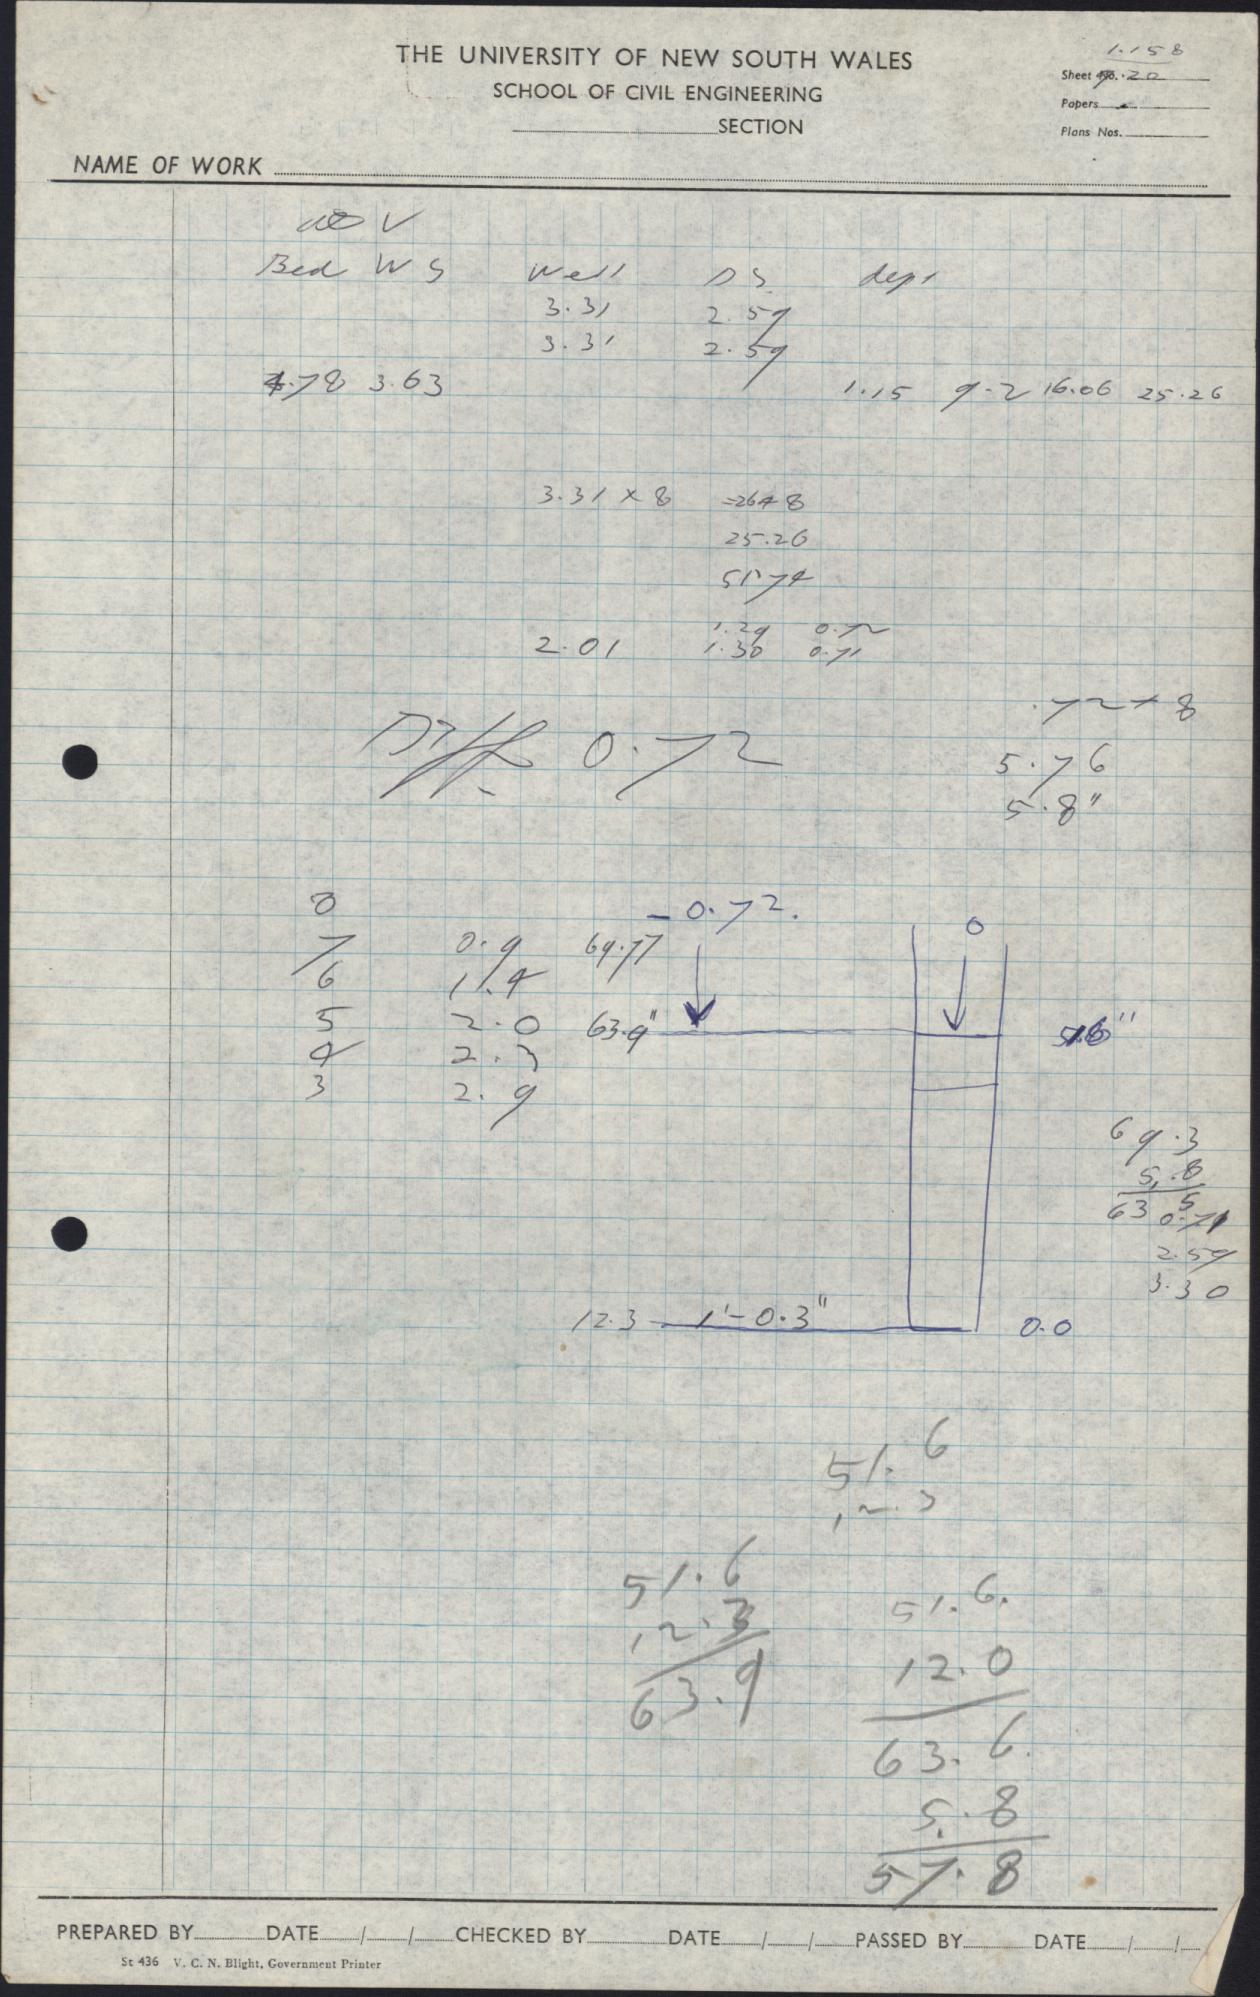 THE UNIVERSITY OF NEW SOUTH WALES
SCHOOL OF CIVIL ENGINEERING
SECTION
1.158
Sheet No. 20
Papers
Plans Nos.
NAME OF WORK
V
Bed W S Well D S dept
3.31 2.59
3.31 2.59
4.78 3.63 1.15 9.2 16.06 25.26
3.31 x 8 =2648
25.26
51.74
1.29 0.72
2.01 1.30 0.71
.72 x 8
Diff 0.72 5.76
5.8"
8 - 0.72. 0
7 0.9 69.77
6 1.4
5 2.0 63.9" 51.6"
4 2.3
3 2.9
69.3
5.8
63 5
0.71
2.59
3.30
12.3 1'-0.3" 0.0
51.6
12.3
51.6
12.3
63.9
51.6.
12.0
63.6.
5.8
57.8
PREPARED BY DATE / / CHECKED BY DATE / / PASSED BY DATE / /
St 436 V. C. N. Blight, Government Printer